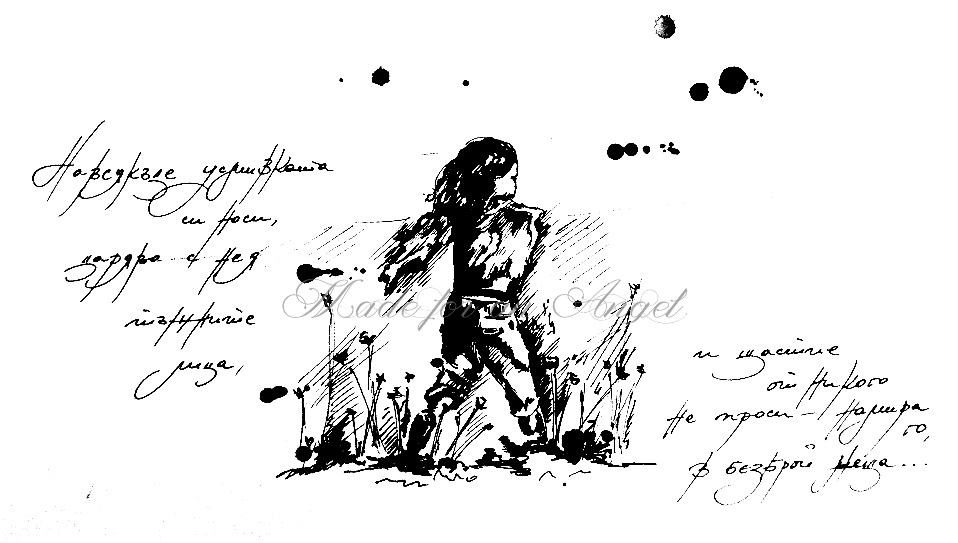 Навсякъде усмивката
си носи,
дарява с нея
тъжните
лица,
Made for an Angel
и щастие
от никого
не проси - намира
го,
в безброй неща...